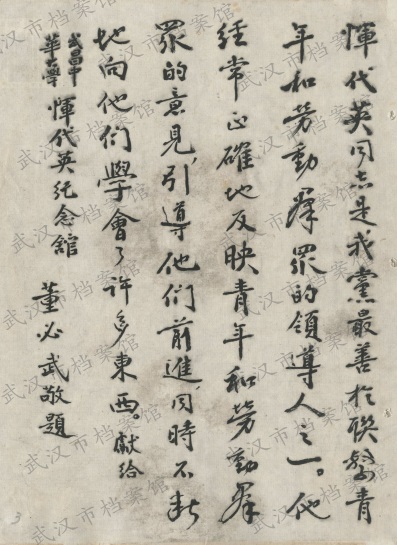 惲代英同志是我黨最善於联繫青
年和劳動羣眾的領導人之一。他
經常正確地反映青年和劳動羣
眾的意見,引導他们前進,同時不断
地向他们學會了许多東西。獻给
武昌中
華
惲代英纪念館
董必武敬題
武汉市档案馆